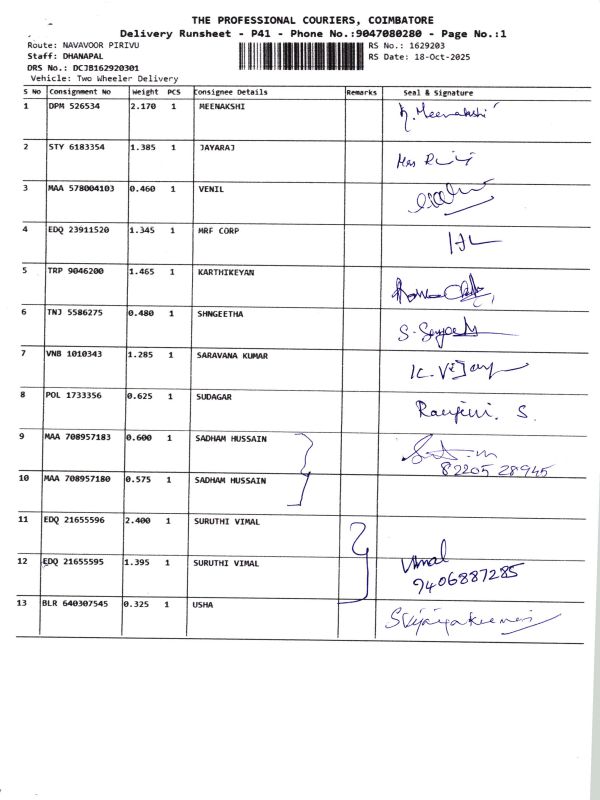 THE PROFESSIONAL COURIERS, COIMBATORE
Delivery Runsheet - P41 - Phone No.:9047080280 - Page No.:1
Route: NAVAVOOR PIRIVU RS No.: 1629203
Staff: DHANAPAL RS Date: 18-Oct-2025
DRS No.: DCJB162920301
Vehicle: Two Wheeler Delivery
S No Consignment No Weight PCS Consignee Details Remarks Seal & Signature
1 DPM 526534 2.170 1 MEENAKSHI K. Meenakshi
2 STY 6183354 1.385 1 JAYARAJ
3 MAA 578004103 0.460 1 VENIL
4 EDQ 23911520 1.345 1 MRF CORP
5 TRP 9046200 1.465 1 KARTHIKEYAN
6 TNJ 5586275 0.480 1 SHNGEETHA
7 VNB 1010343 1.285 1 SARAVANA KUMAR
8 POL 1733356 0.625 1 SUDAGAR Ranjini. S.
9 MAA 708957183 0.600 1 SADHAM HUSSAIN
82205 28945
10 MAA 708957180 0.575 1 SADHAM HUSSAIN
11 EDQ 21655596 2.400 1 SURUTHI VIMAL
12 EDQ 21655595 1.395 1 SURUTHI VIMAL Vimal
9406887285
13 BLR 640307545 0.325 1 USHA S Vijayakumari